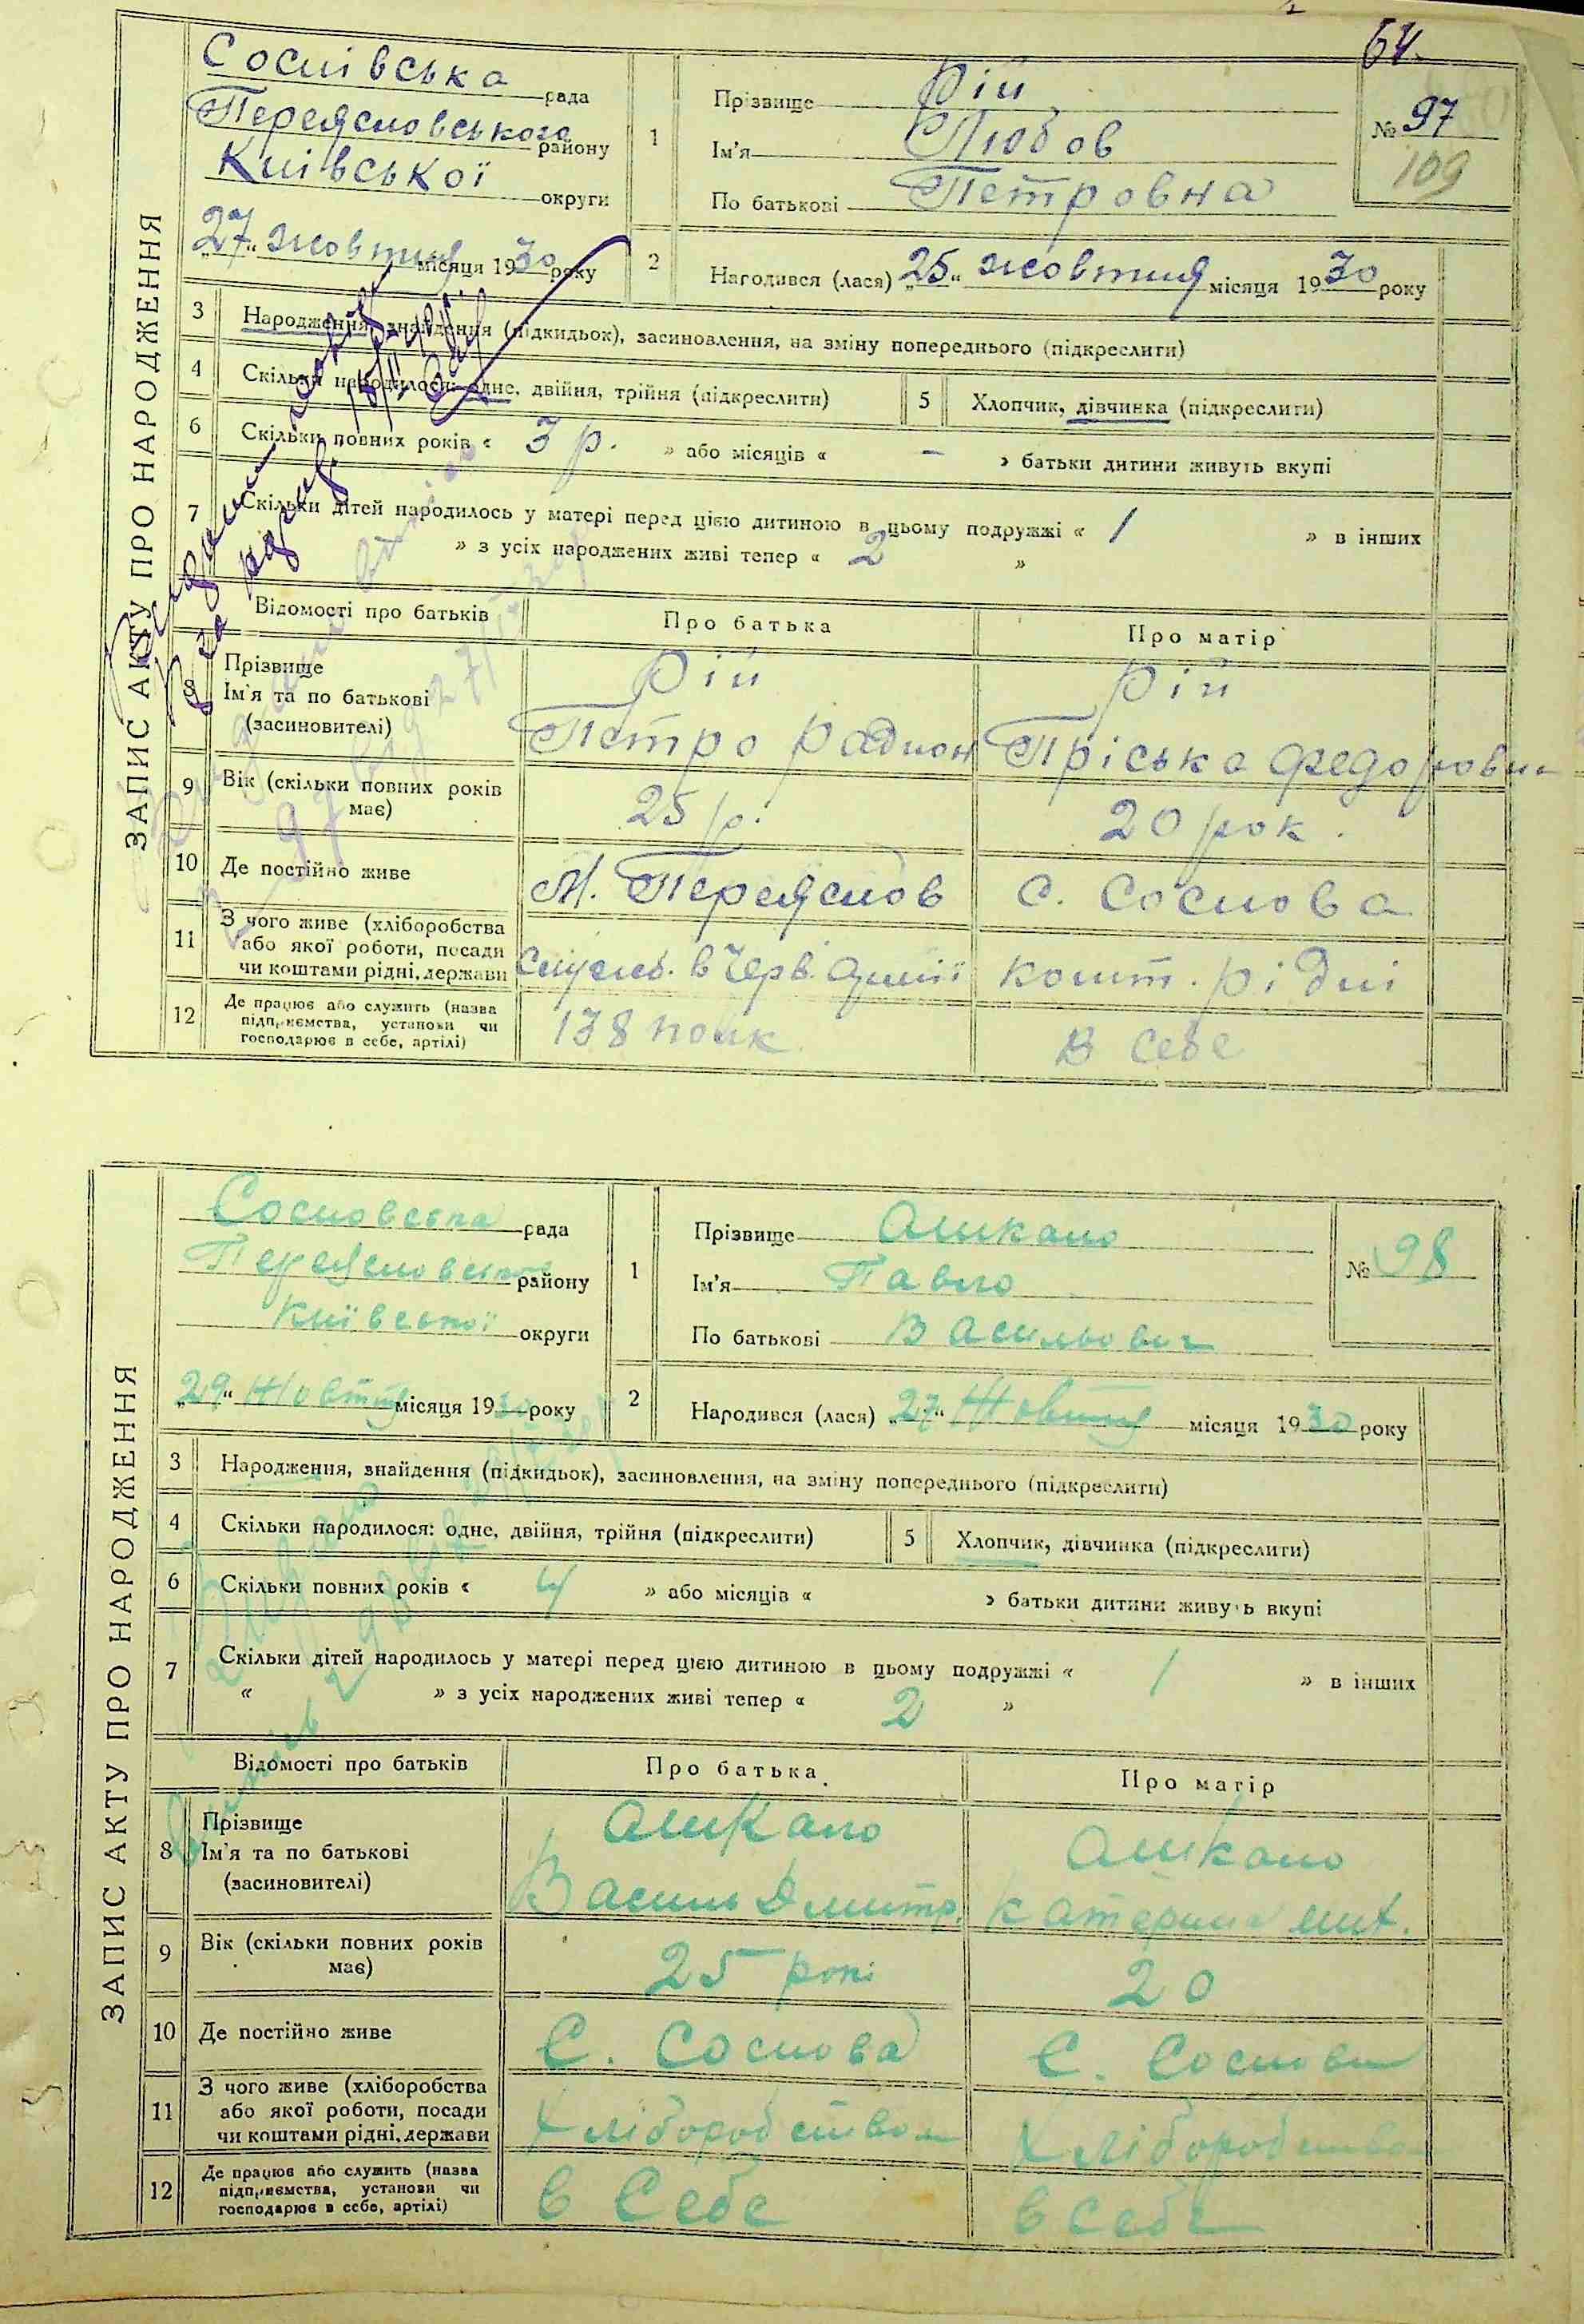 64.
ЗАПИС АКТУ ПРО НАРОДЖЕННЯ
Соснівська рада
Переясловського району
Київської округи
„27“ жовтня місяця 1930 року
1
Прізвище Рій
Ім'я Любов
По батькові Петровна
№ 97
109
2
Народився (лася) „25“ жовтня місяця 1930 року
3 Народження, знайдення (підкидьок), засиновлення, на зміну попереднього (підкреслити)
4 Скільки народилося: одне, двійня, трійня (підкреслити)
5 Хлопчик, дівчинка (підкреслити)
6 Скільки повних років « 3 р. » або місяців « – » батьки дитини живуть вкупі
7 Скільки дітей народилось у матері перед цією дитиною в цьому подружжі « 1 » в інших
» з усіх народжених живі тепер « 2 »
Відомості про батьків Про батька Про матір
8 Прізвище Рій Рій
Ім'я та по батькові Петро Радион Пріська Федоровна
(засиновителі)
9 Вік (скільки повних років має) 25 р. 20 рок.
10 Де постійно живе М. Переяслов с. Соснова
11 З чого живе (хліборобства
або якої роботи, посади
чи коштами рідні, держави в Черв. Армії кошт. рідні
12 Де працює або служить (назва
підприємства, установи чи
господарює в себе, артілі) 138 полк в себе
ЗАПИС АКТУ ПРО НАРОДЖЕННЯ
Сосновська рада
району
Київської округи
„29“ Жовтня місяця 1930 року
1
Прізвище Ошкало
Ім'я Павло
По батькові Васильович
№ 98
2
Народився (лася) „27“ Жовтня місяця 1930 року
3 Народження, знайдення (підкидьок), засиновлення, на зміну попереднього (підкреслити)
4 Скільки народилося: одне, двійня, трійня (підкреслити)
5 Хлопчик, дівчинка (підкреслити)
6 Скільки повних років « 4 » або місяців « » батьки дитини живуть вкупі
7 Скільки дітей народилось у матері перед цією дитиною в цьому подружжі « 1 » в інших
« » з усіх народжених живі тепер « 2 »
Відомості про батьків Про батька Про матір
8 Прізвище Ошкало Ошкало
Ім'я та по батькові Василь Дмитр. Катерина Мих.
(засиновителі)
9 Вік (скільки повних років має) 25 рокі 20
10 Де постійно живе С. Соснова С. Соснови
11 З чого живе (хліборобства
або якої роботи, посади
чи коштами рідні, держави Хліборобством Хліборобство
12 Де працює або служить (назва
підприємства, установи чи
господарює в себе, артілі) в Себе в себе